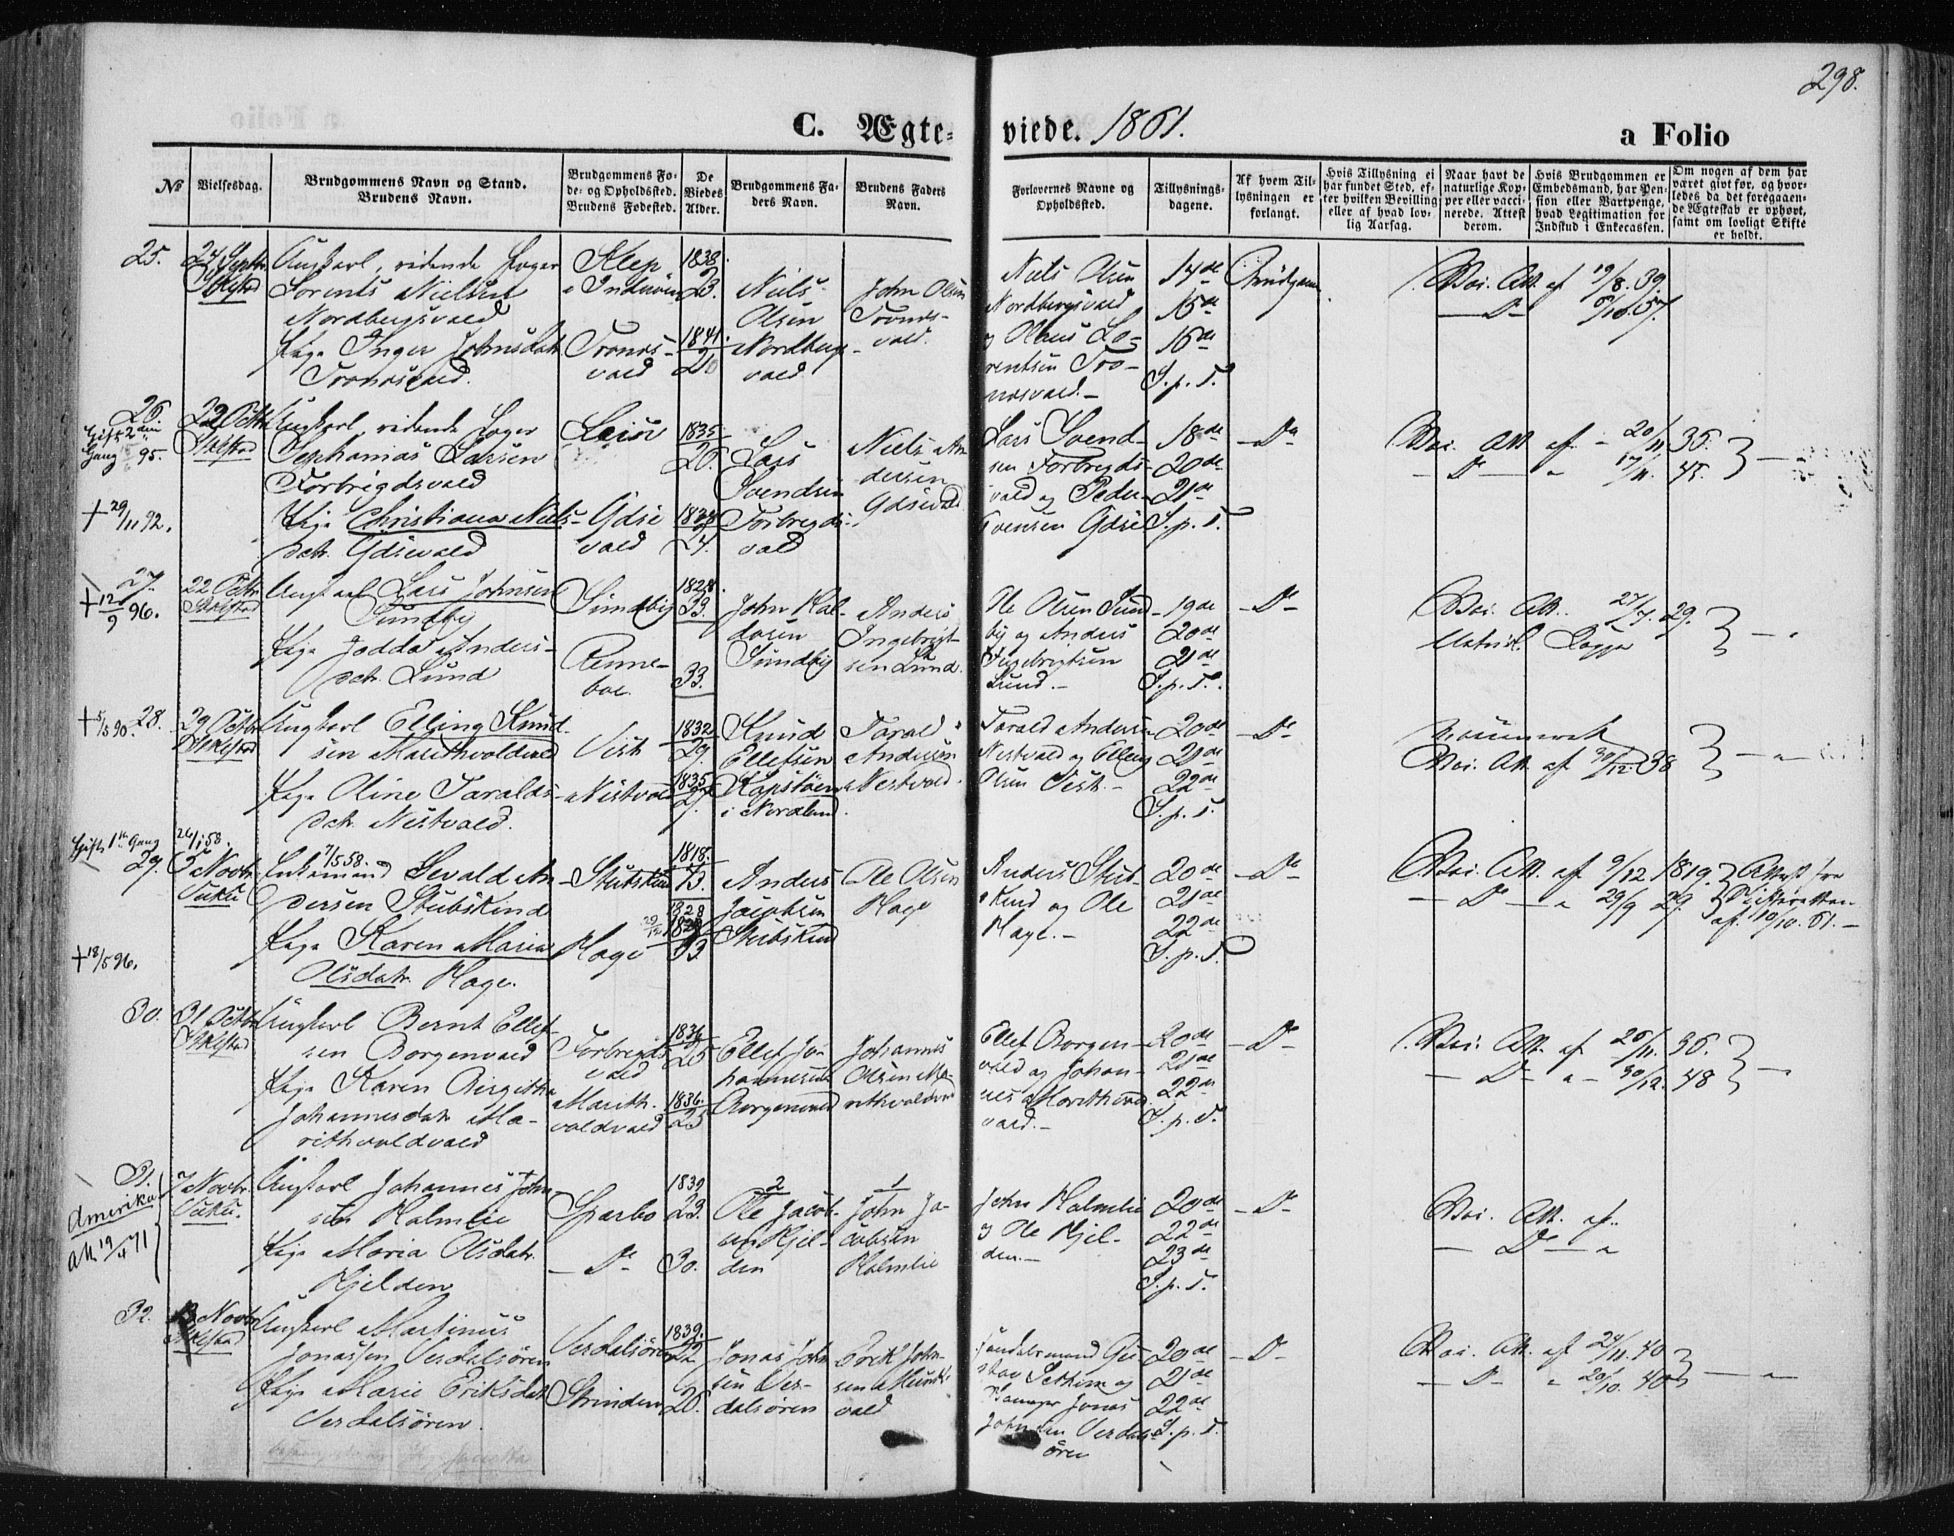 298.
C. Ægteviede. 1861. a Folio
№
Vielsesdag.
Brudgommens Navn og Stand.
Brudens Navn.
Brudgommens Fo-
de- og Opholdssted.
Brudens Fødested.
De
Viedes
Alder.
Brudgommens Fa-
ders Navn.
Brudens Faders
Navn.
Forlovernes Navne og
Opholdssted.
Tillysnings-
dagene.
Af hvem Til-
lysningen er
forlangt.
Hvis Tillysning ei
har fundet Sted, ef-
ter hvilken Bevilling
eller af hvad lov-
lig Aarsag.
Naar havt de
naturlige Kop-
per eller vacci-
nerede. Attest
derom.
Hvis Brudgommen er
Embedsmand, har Pen-
sion eller Vartpenge,
hvad Legitimation for
Indskud i Enkecassen.
Om nogen af dem har
været givt før, og hvor-
ledes da det foregaaen-
de Ægteskab er ophørt,
samt om lovligt Skifte
er holdt.
25.
24 Septbr
Stiklestad
Ungkarl, ridende Jæger
Lorents Nielsen
Nordbergsvald
Pige Inger Johnsdatr
Tronæsvald.
1838.
23.
Tronæs-
vald
1841.
20
Niels
Olsen
Nordbergs-
vald
John Olsen
Tronæs-
vald.
Niels Olsen
Nordbergsvald
og Olaus Lo-
rentsen Tro-
næsvald.-
14de
15de
16de
S. p. T.
Vac. Att. af 19/8. 39.
26.
Gift 2den
Gang 95.
+ 29/11 92.
22 Octbr
Stiklestad
Ungkarl, ridende Jæger
Larsen
Forbregdsvald
Pige Christiana Niels-
datr. Ydsevald
1835
26.
Ydse
vald
24.
Lars
Svendsen
Forbregds-
vald
Niels An
dersen
Ydsevald
Lars Svend-
sen Forbregds-
vald og Peder
Svensen Ydse
18de
20de
21de
S. p. T.
Do
Vac. Att. af 20/11. 36.
Do 17/11. 45.
27.
+ 12/9 96.
22 Octbr
Stiklestad
Ungkarl Lars Johnsen
Sundby
Pige Jodda Anders-
datr. Lund
Sundby
Renne-
boe.
1828.
33.
33.
John Hal-
dosen
Sundby
Anders
Ingebrigt-
sen Lund.
Ole Olsen Sund-
by og Anders
Ingebrigtsen
Lund.-
19de
20de
21de
S. p. T.
Do
Vac. Att. 27/7. 29.
Naturl. Kopper
+ 5/5 90. 28.
29 Octbr
Stiklestad
Ungkarl Elling Knud-
sen Marithvoldvald
Pige Oline Taralds-
datr. Nestvald.
Vist
Nestvald
1832
29.
1835
27.
Knud
Ellefsen
i Nordland
Tarald
Andersen
Nestvald.
Tarald Andersen
Nestvald og Elling
Olsen Vist.-
20de
21de
22de
S. p. T.
Do
Vac. Att. af 30/12. 38
Gift 1te Gang
29.
+ 18/5 96.
5 Novbr
Vuku
7/5 58.
Enkemand Sevald An-
dersen Stubskind
Pige Karen Maria
Olsdatr. Hage.
Stubskind
Hage
1818.
43.
1828
33.
Anders
Jacobsen
Stubskind
Ole Olsen
Hage
Anders Stub-
skind og Ole
Hage.-
20de
21de
22de
S. p. T.
Do
Vac. Att. af 9/12. 1819.
Do 29/9 29.
Attest fra
Skifteretten
af 10/10. 61.-
30.
31 Octbr
Stiklestad
Ungkarl Bernt Ellef-
sen Borgenvald
Pige Karen Birgitta
Johannesdatr. Ma-
rithvoldvald
Forbregds-
vald
Marith-
voldvald
1836
25
1836.
25
Ellef Jo-
hannesen
Borgenvald
Johannes
Olsen Ma-
rithvoldvald
Ellef Borgen-
vald og Johan-
nes Marithvold-
vald.-
20de
21de
22de
S. p. T.
Do
Vac. Att. af 26/11. 36.
Do 30/12. 48
31.
Amerika
Att 19/4 71
7 Novbr.
Vuku.
Ungkarl Johannes John-
sen Halmlie
Pige Maria Olsdatr.
Hjelden
Sparbo
Do
1839
23.
30.
2
Ole Jacob-
sen Hjel-
den
1
John Ja-
cobsen
Halmlie
John Halmlie
og Ole Hjel-
den.-
20de
22de
23de
S. p. T.
Do
Vac. Att. af
Do
32.
Novbr
Stiklestad
Ungkarl Martinus
Jonassen Verdalsøren
Pige Marie Eriksdatr
Verdalsøren.
Verdalsøren
Strinden
1839.
22
26.
Jonas John-
sen Ver-
dalsøren
Erik John-
sen
vald
Handelsmand Gu-
stav Sethem og
Jonas
Johnsen Verdals-
øren
20de
21de
22de
S. p. T.
Do
Vac. Att. af 24/11. 40
Do 20/10. 40